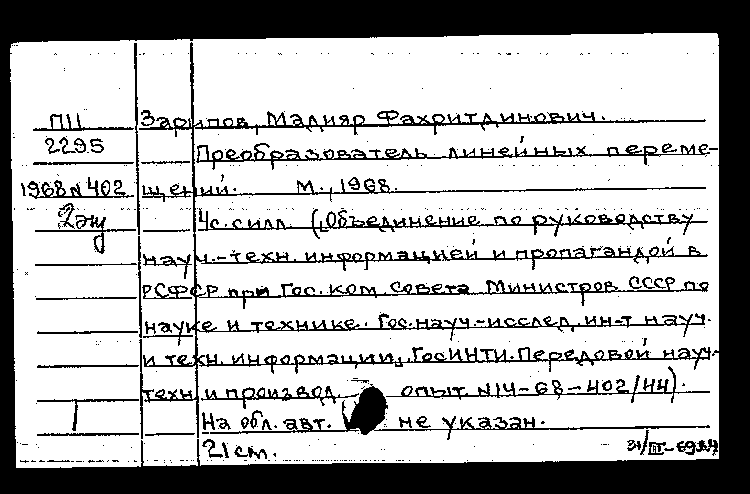 П11 Зарипов, Мадияр Фахритдинович.
2295 Преобразователь линейных переме-
1968 N 402 щений. М., 1968.
2 экз 4 с. с илл. (Объединение по руководству
науч.-техн. информацией и пропагандой в
РСФСР при Гос. ком. Совета Министров СССР по
науке и технике. Гос. науч.-исслед. ин-т науч.
и техн. информации, ГосИНТИ. Передовой науч.-
техн. и производ. опыт. N 14-68-402/44).
1 На обл. авт. не указан.
21 см.